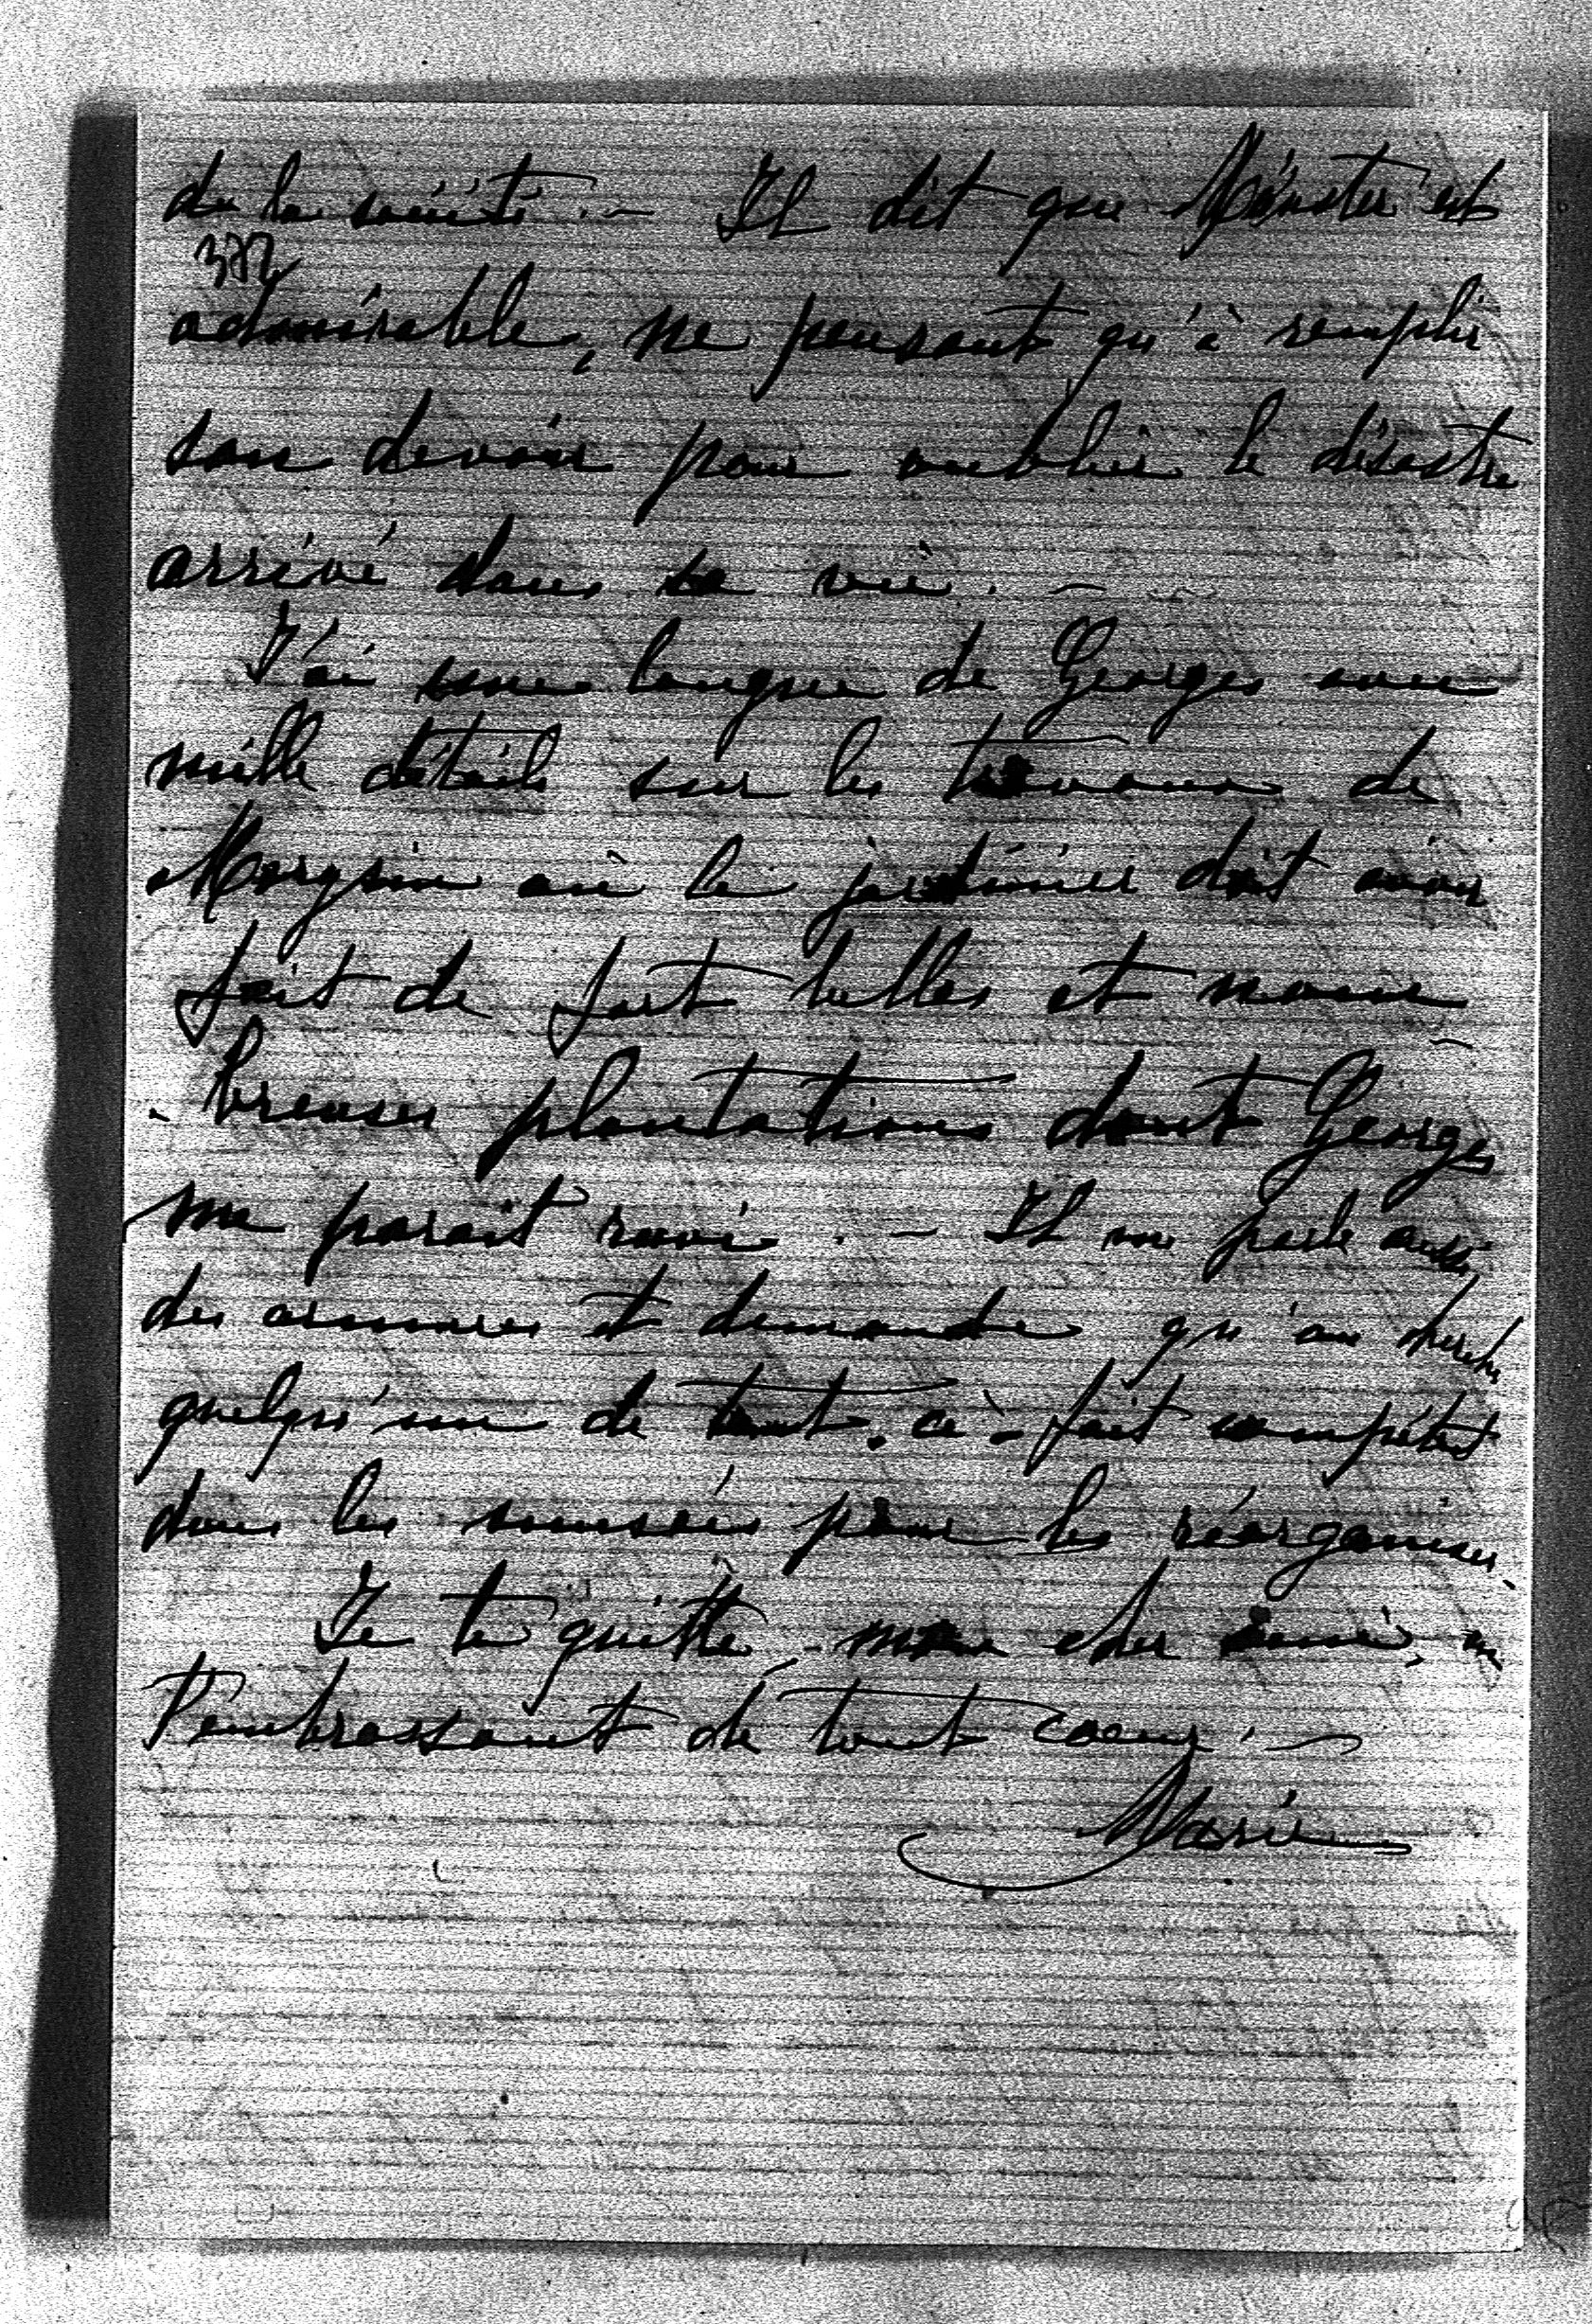 de la société. — Il dit que est
admirable, ne pensant qu'à remplir
son devoir pour oublier le désastre
arrivé dans sa vie. —
J'ai une longue de Georges avec
mille détails sur les travaux de
où le jardinier doit avoir
fait de fort belles et nom
-breuses plantations dont Georges
me parait ravi. — Il me parle aussi
des armures et demande qu'on cherche
quelqu'un de tout-à-fait compétent
dans les musées pour les réorganiser.
Je te quitte, mon cher ami, en
t'embrassant de tout coeur. —
Marie